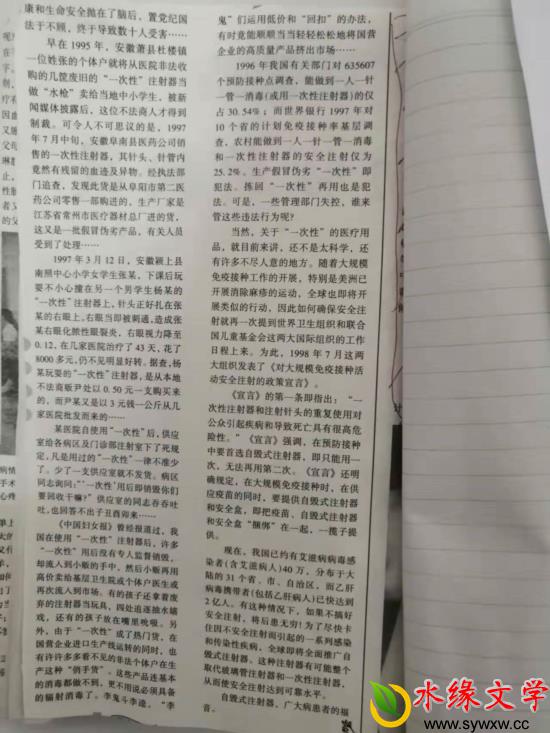 康和生命安全抛在了脑后，置党纪国
法于不顾，终于导致数十人受害……
早在 1995 年，安徽萧县杜楼镇
一位姓张的个体户就将从医院非法收
购的几筐废旧的“一次性”注射器当
做“水枪”卖给当地中小学生，被新
闻媒体披露后，这位不法商人才得到
制裁。可令人不可思议的是，1997
年 7 月中旬，安徽阜南县医药公司销
售的一次性注射器，其针头、针管内
竟然有残留的血迹及异物。经执法部
门追查，发现此货是从阜阳市第二医
药公司零售一部购进的，生产厂家是
江苏省常州市医疗器材总厂进的货，
这又是一批假冒伪劣产品，有关人员
受到了处理……
1997 年 3 月 12 日，安徽颍上县
南照中心小学女学生张某，下课后玩
耍不小心撞在另一个男学生杨某的
“一次性”注射器上，针头正好扎在张
某的右眼上，右眼当即被刺通，造成张
某右眼化脓性眼裂炎，右眼视力降至
0.12，在几家医院治疗了 43 天，花了
8000 多元，仍不见明显好转。据查，杨
某玩耍的“一次性”注射器，是从本地
不法商贩尹处以 0.50 元一支购买来
的，而尹某又是以 3 元钱一公斤从几
家医院批发而来的……
某医院自使用“一次性”后，供应
室给各病区及门诊部注射室下了死规
定，凡是用过的“一次性”一律不准少
了。少了一支供应室就不发货。病区
同志询问：“‘一次性’用后即销毁你们
要回收干嘛？”供应室的同志吞吞吐
吐，也回答不出子丑酉卯来……
《中国妇女报》曾经报道过，我
国在使用“一次性”注射器后，许多
“一次性”用后没有专人监督销毁，
却流入到小贩的手中，然后小贩再用
高价卖给基层卫生院或个体户医生或
再次流入到市场。有的孩子还拿着废
弃的注射器当玩具，四处追逐抽水嬉
戏，还有的孩子放在嘴里吮吸。另
外，由于“一次性”成了热门货，在
国营企业进口生产线运转的同时，也
有许许多多看不见的非法个体户在生
产这种“俏手货”。这些产品连基本
的消毒都做不到，更不用说必须具备
的辐射消毒了。李鬼斗李逵。“李
鬼”们运用低价和“回扣”的办法，
有时竟能顺顺当当轻轻松松地将国营
企业的高质量产品挤出市场……
1996 年我国有关部门对 635607
个预防接种点调查，能做到一人一针
一管一消毒(或用一次性注射器)的仅
占 30.54%；而世界银行 1997 年对
10 个省的计划免疫接种率基层调
查，农村能做到一人一针一管一消毒
和一次性注射器的安全注射仅为
25.2%。生产假冒伪劣“一次性”即
犯法。拣回“一次性”再用也是犯
法。可是，一些管理部门失控，谁来
管这些违法行为呢?
当然，关于“一次性”的医疗用
品，就目前来讲，还不是太科学，还
有许多不尽人意的地方。随着大规模
免疫接种工作的开展，特别是美洲已
开展消除麻疹的运动，全球也即将开
展类似的行动，因此如何确保安全注
射就再一次提到世界卫生组织和联合
国儿童基金会这两大国际组织的工作
日程上来。为此，1998 年 7 月这两
大组织发表了《对大规模免疫接种活
动安全注射的政策宣言》。
《宣言》的第一条即指出：“一
次性注射器和注射针头的重复使用对
公众引起疾病和导致死亡具有很高危
险性。”《宣言》强调，在预防接种
中要首选自毁式注射器，即只能用一
次，无法再用第二次。《宣言》还明
确规定，在大规模免疫接种时，在供
应疫苗的同时，要提供自毁式注射器
和安全盒，即把疫苗、自毁式注射器
和安全盒“捆绑”在一起，一揽子提
供。
现在，我国已约有艾滋病病毒感
染者(含艾滋病人)40 万，分布于大
陆的 31 个省、市、自治区，而乙肝
病毒携带者(包括乙肝病人)已快达到
2 亿人。有这种情况下，如果不搞好
安全注射，将后患无穷!为了尽快卡
住因不安全注射而引起的一系列感染
和传染性疾病，全球即将全面推广自
毁式注射器。这种注射器有可能整个
取代玻璃管注射器和一次性注射器，
从而使安全注射达到可靠水平。
自毁式注射器，广大病患者的福
音。
水缘文学
www.sywxw.cc